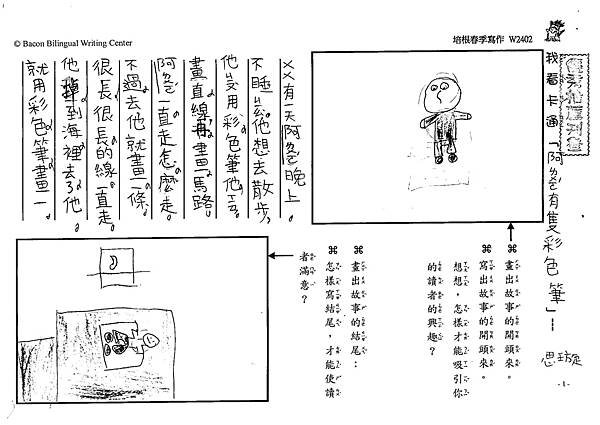 © Bacon Bilingual Writing Center
培根春季寫作 W2402
我看卡通「阿爸有隻彩色筆」—
思璇
⌘ 畫出故事的開頭來。
⌘ 寫出故事的開頭來。
想想,怎樣才能吸引你
的讀者的興趣?
⌘ 畫出故事的結尾:
⌘ 怎樣寫結尾,才能使讀
者滿意?
XX有一天阿爸晚上
不睡,他想去散步,
他用彩色筆他
畫直線再畫一馬路。
阿爸一直走怎麼走。
不過去他就畫一條
很長很長的線一直走。
他掉到海裡去了他
就用彩色筆畫一
-1-